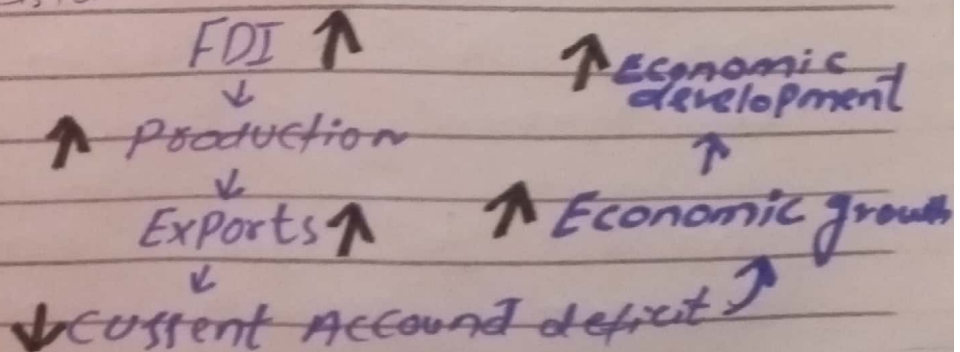 FDI ↑
↓
↑ Production
↓
Exports ↑
↓
↓ Current Account deficit ↗
↑ Economic growth
↑
↑ Economic
development